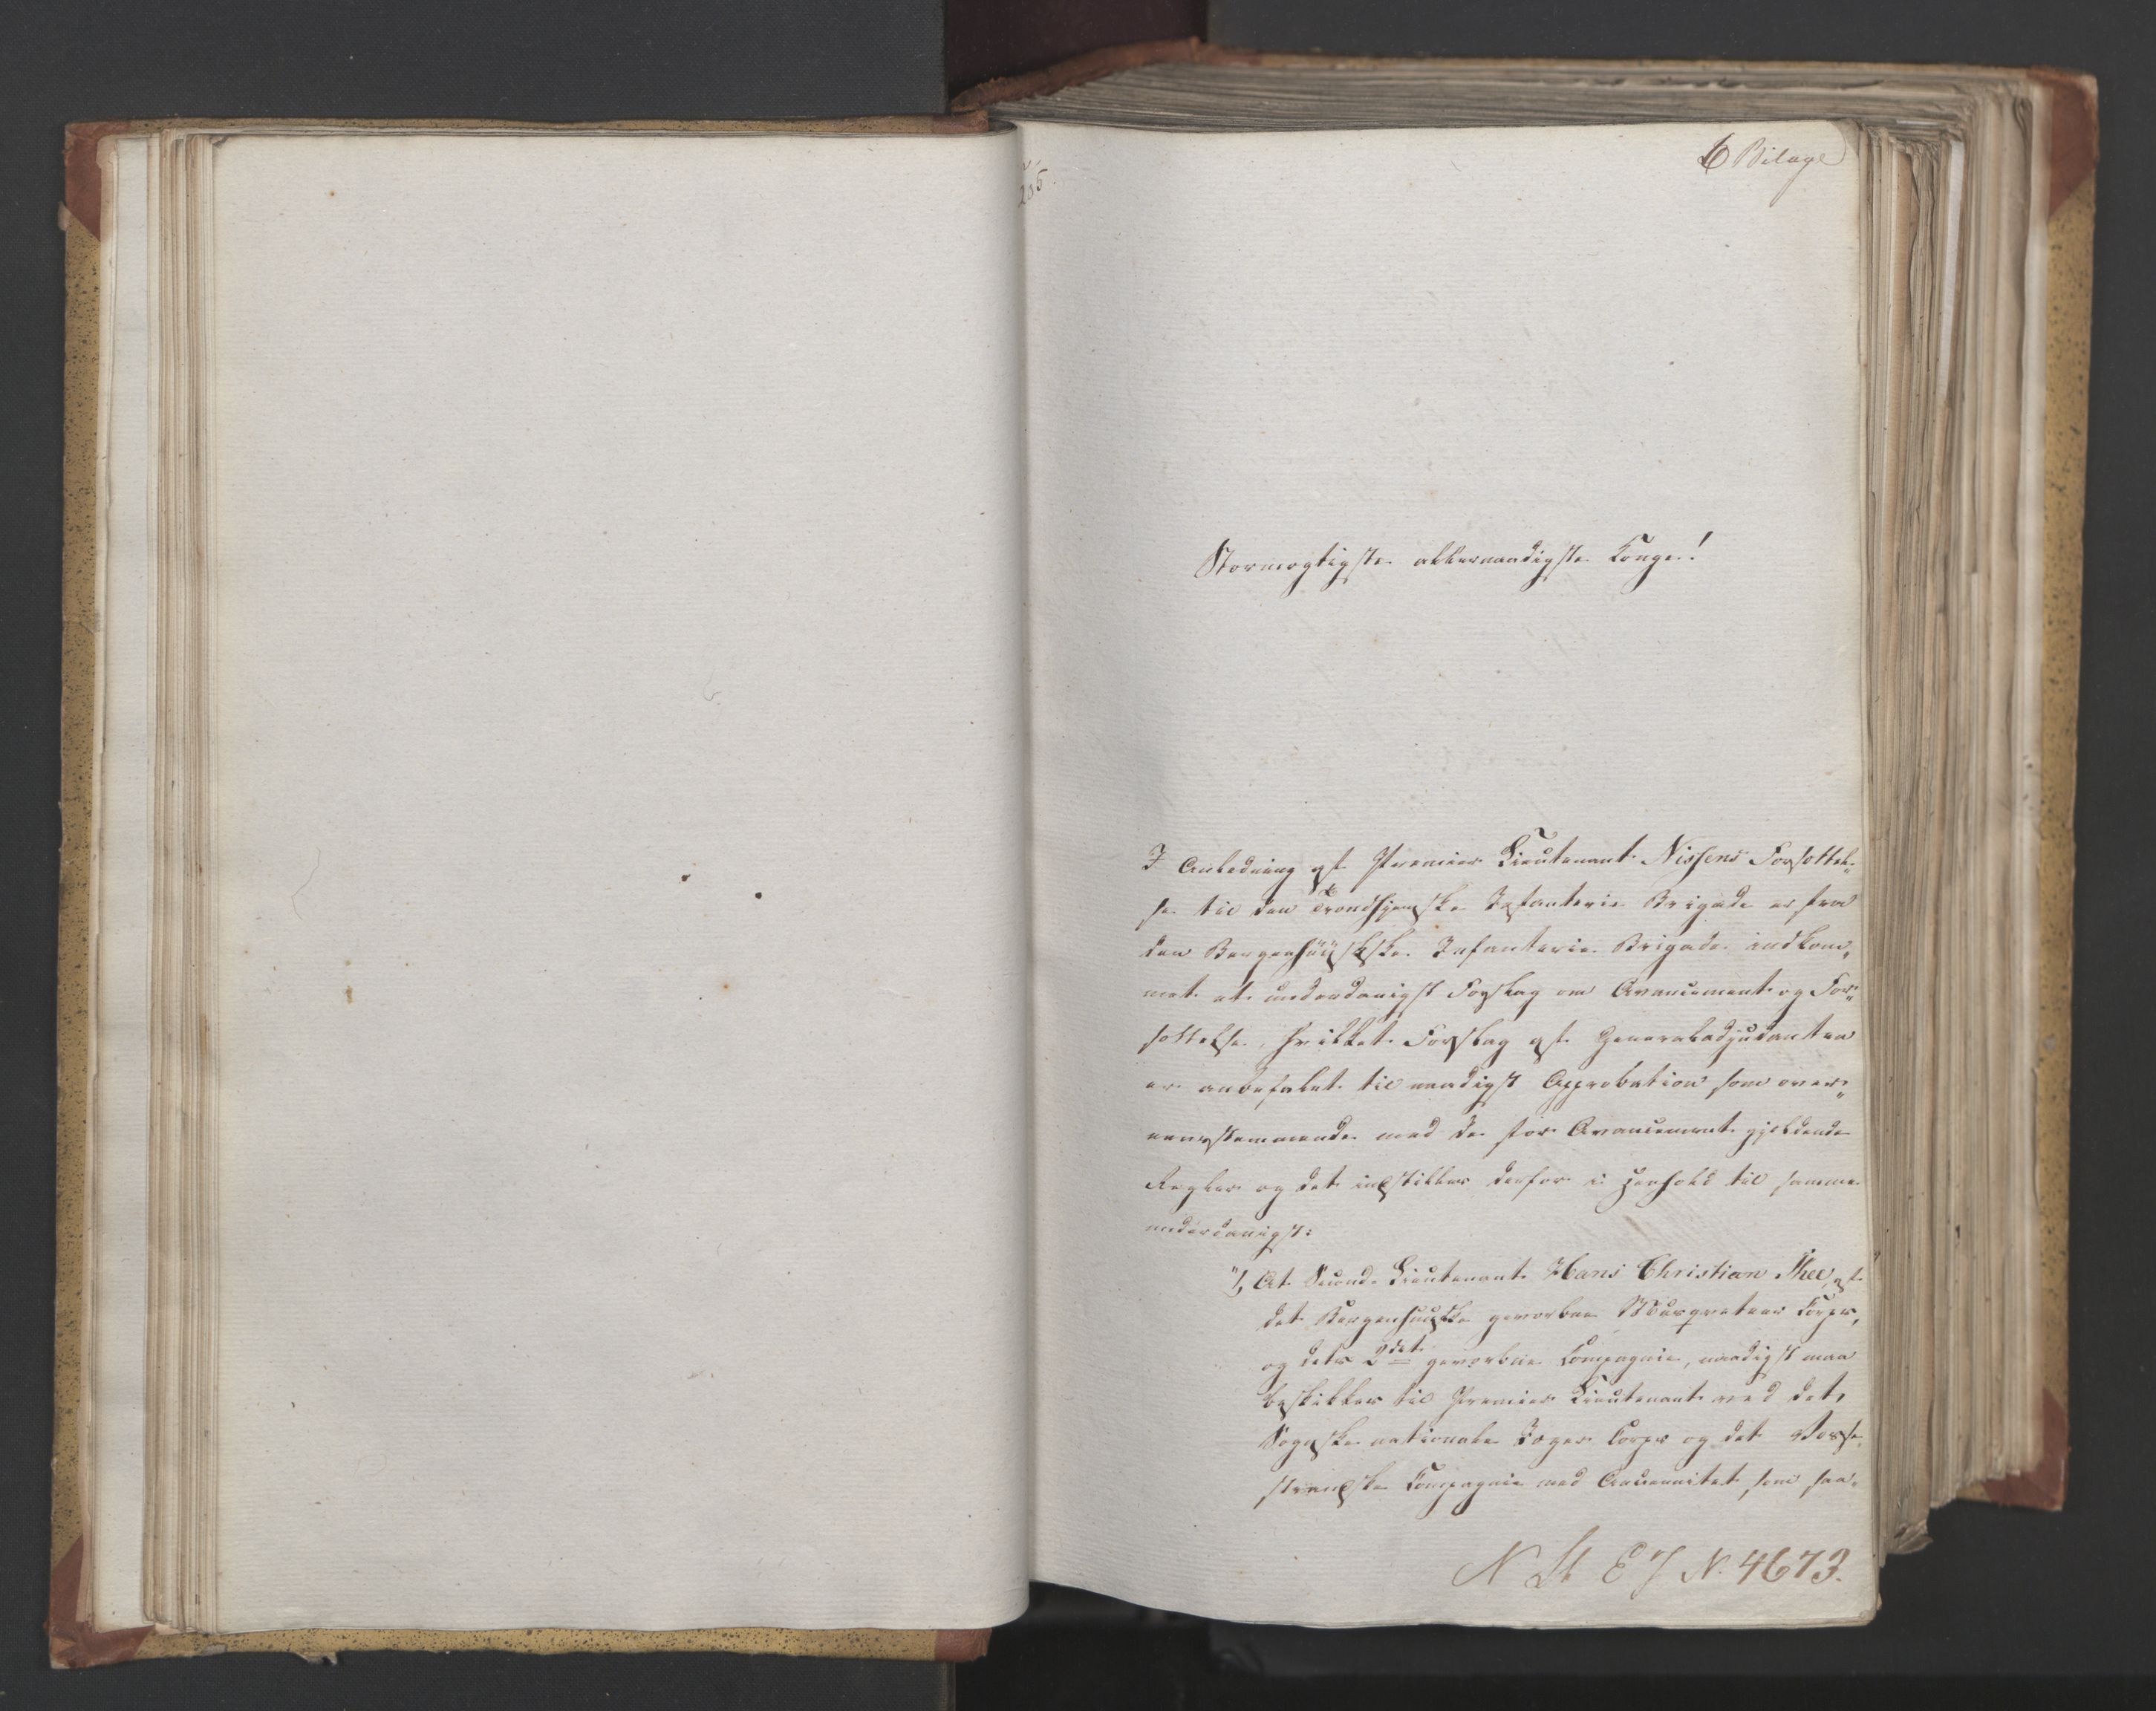 6 Bilage
255.
Stormegtigste allernaadigste Konge!
I Anledning af Premier Lieutenant Nissens Forsættel„
se til den Trondhjemske Infanterie Brigade er fra
den Bergenhuusiske Infanterie Brigade indkom„
met et underdanigst Forslag om Avancement og For„
sættelse, hvilket Forslag af Generaladjudanten
er anbefalet til naadigst Approbation som over„
eensstemmende med de for Avancement gjeldende
Regler og det indstilles derfor i Henhold til samme
underdanigst:
1, At Second Lieutenant Hans Christian Thee, af
det Bergenhuuske gevorbne Musqveteer Corps,
og dets 2det gevorbne Compagnie, naadigst maa
beskikkes til Premier Lieutenant ved det
Sognske nationale Jæger Corps og det Vosse„
strandske Compagnie med Anciennitet som saa„
N St E J N. 4673.